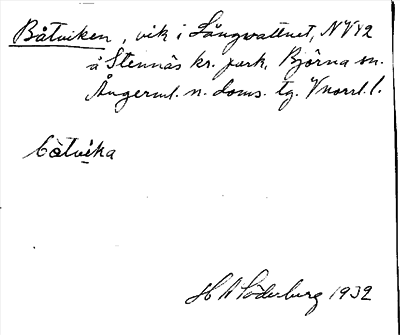 Båtviken, vik i Långvattnet, NV42
å Stennäs kr. park. Björna sn.
Ångerml. n. doms. tg. Vnorrl. l.
bàtvika
H A Söderberg 1932